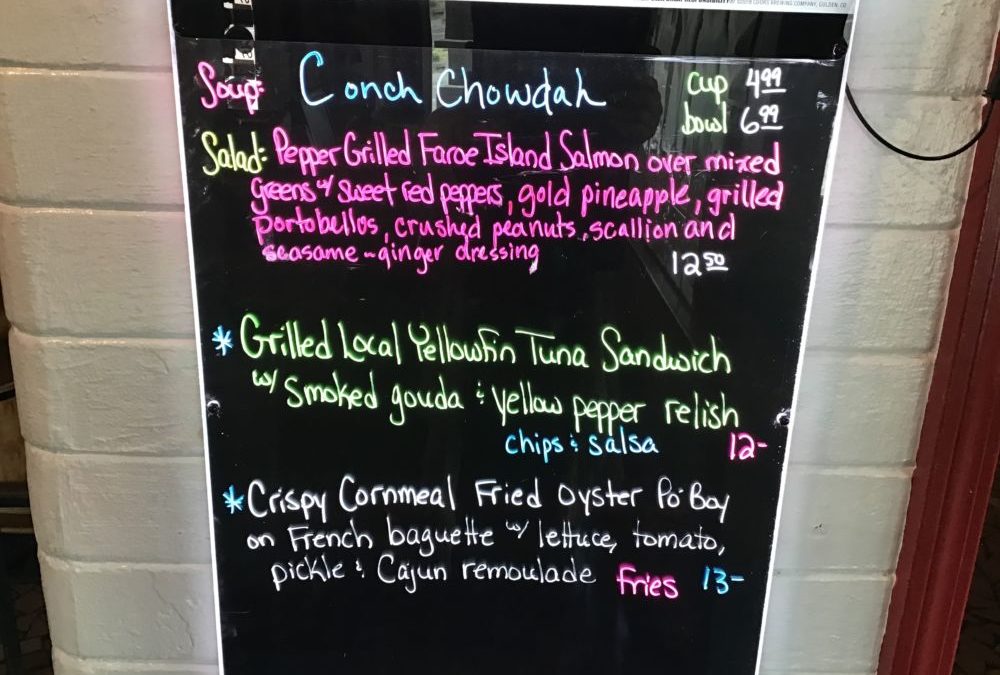 COORS BREWING COMPANY, GOLDEN, CO
Soup: Conch Chowdah cup 4.99
bowl 6.99
Salad: Pepper Grilled Faroe Island Salmon over mixed
greens w/ sweet red peppers, gold pineapple, grilled
portobellos, crushed peanuts, scallion and
seasame-ginger dressing 12.50
* Grilled Local Yellowfin Tuna Sandwich
w/ smoked gouda & yellow pepper relish
chips & salsa 12-
* Crispy Cornmeal Fried Oyster Po-Boy
on French baguette w/ lettuce, tomato,
pickle & Cajun remoulade Fries 13-